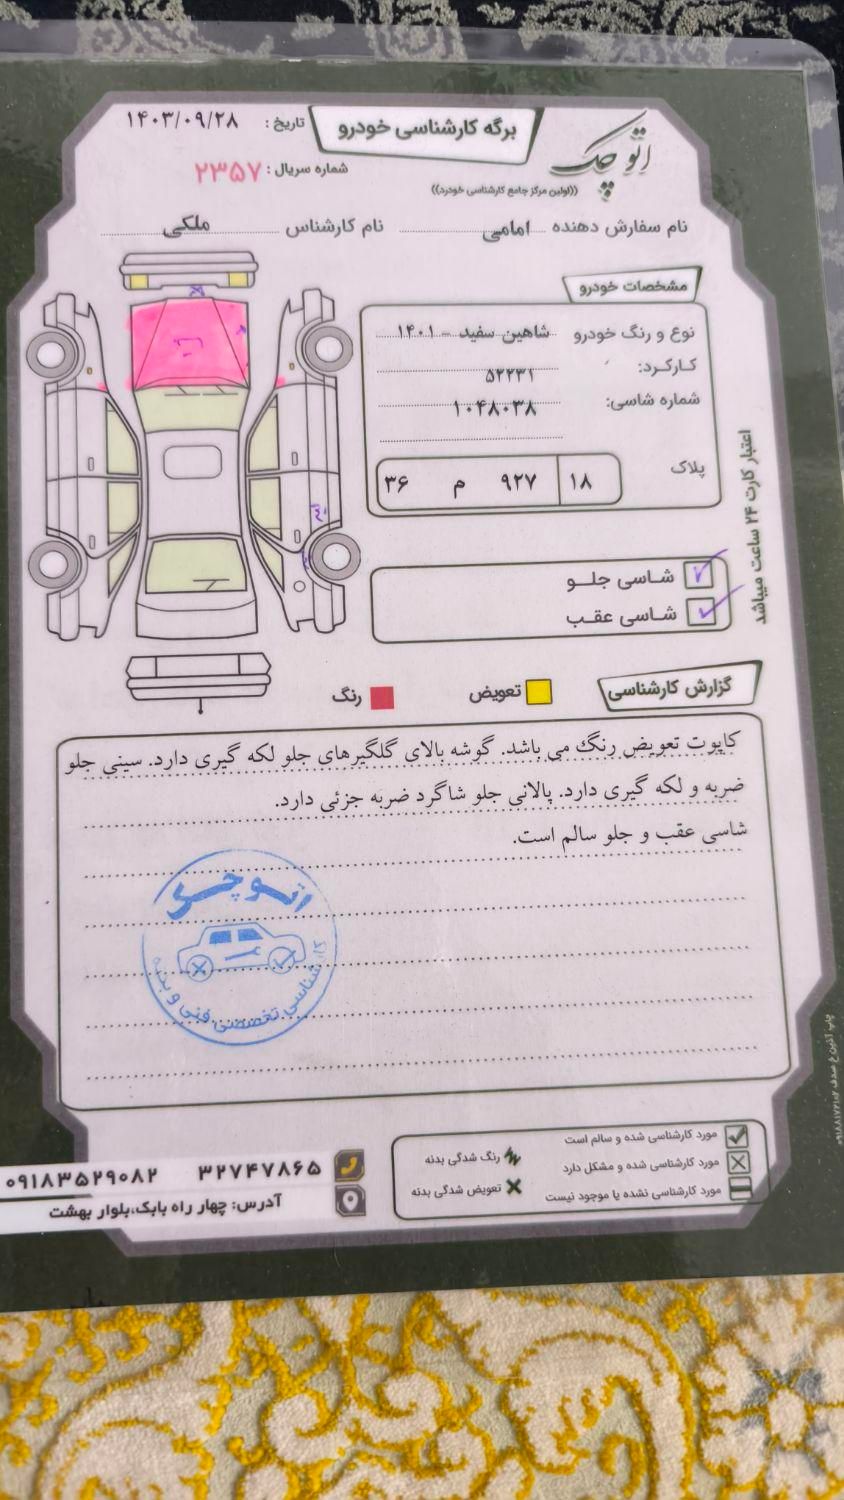 اتو چک
برگه کارشناسی خودرو
تاریخ : ۱۴۰۳/۰۹/۲۸
شماره سریال : ۲۳۵۷
((اولین مرکز جامع کارشناسی خودرد))
نام سفارش دهنده امامی نام کارشناس ملکی
مشخصات خودرو
نوع و رنگ خودرو شاهین سفید - ۱۴۰۱
کارکرد: ۵۲۲۳۱
شماره شاسی: ۱۰۴۸۰۳۸
پلاک ۱۸ ۹۲۷ م ۳۶
اعتبار کارت ۲۴ ساعت میباشد
شاسی جلو
شاسی عقب
گزارش کارشناسی
تعویض
رنگ
کاپوت تعویض رنگ می باشد. گوشه بالای گلگیرهای جلو لکه گیری دارد. سینی جلو
ضربه و لکه گیری دارد. پالانی جلو شاگرد ضربه جزئی دارد.
شاسی عقب و جلو سالم است.
اتوچک
کارشناسی تخصصی فنی و بدنه
مورد کارشناسی شده و سالم است
مورد کارشناسی شده و مشکل دارد
مورد کارشناسی نشده یا موجود نیست
رنگ شدگی بدنه
تعویض شدگی بدنه
۳۲۷۴۷۸۶۵ ۰۹۱۸۳۵۲۹۰۸۲
آدرس: چهار راه بابک،بلوار بهشت